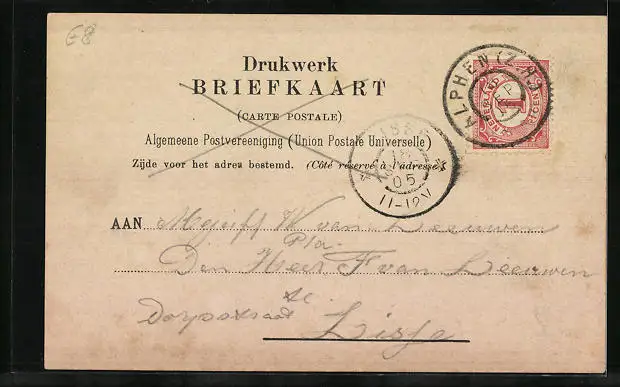 Drukwerk
BRIEFKAART
(CARTE POSTALE)
Algemeene Postvereeniging (Union Postale Universelle)
Zijde voor het adres bestemd. (Côté réservé à l'adresse)
ALPHEN (Z.H)
NEDERLAND
1
LISSE
05
11-12V
AAN Mejuff W van Leeuwen
P/a.
Den Heer F van Leeuwen
te
Dorpsstraat Lisse